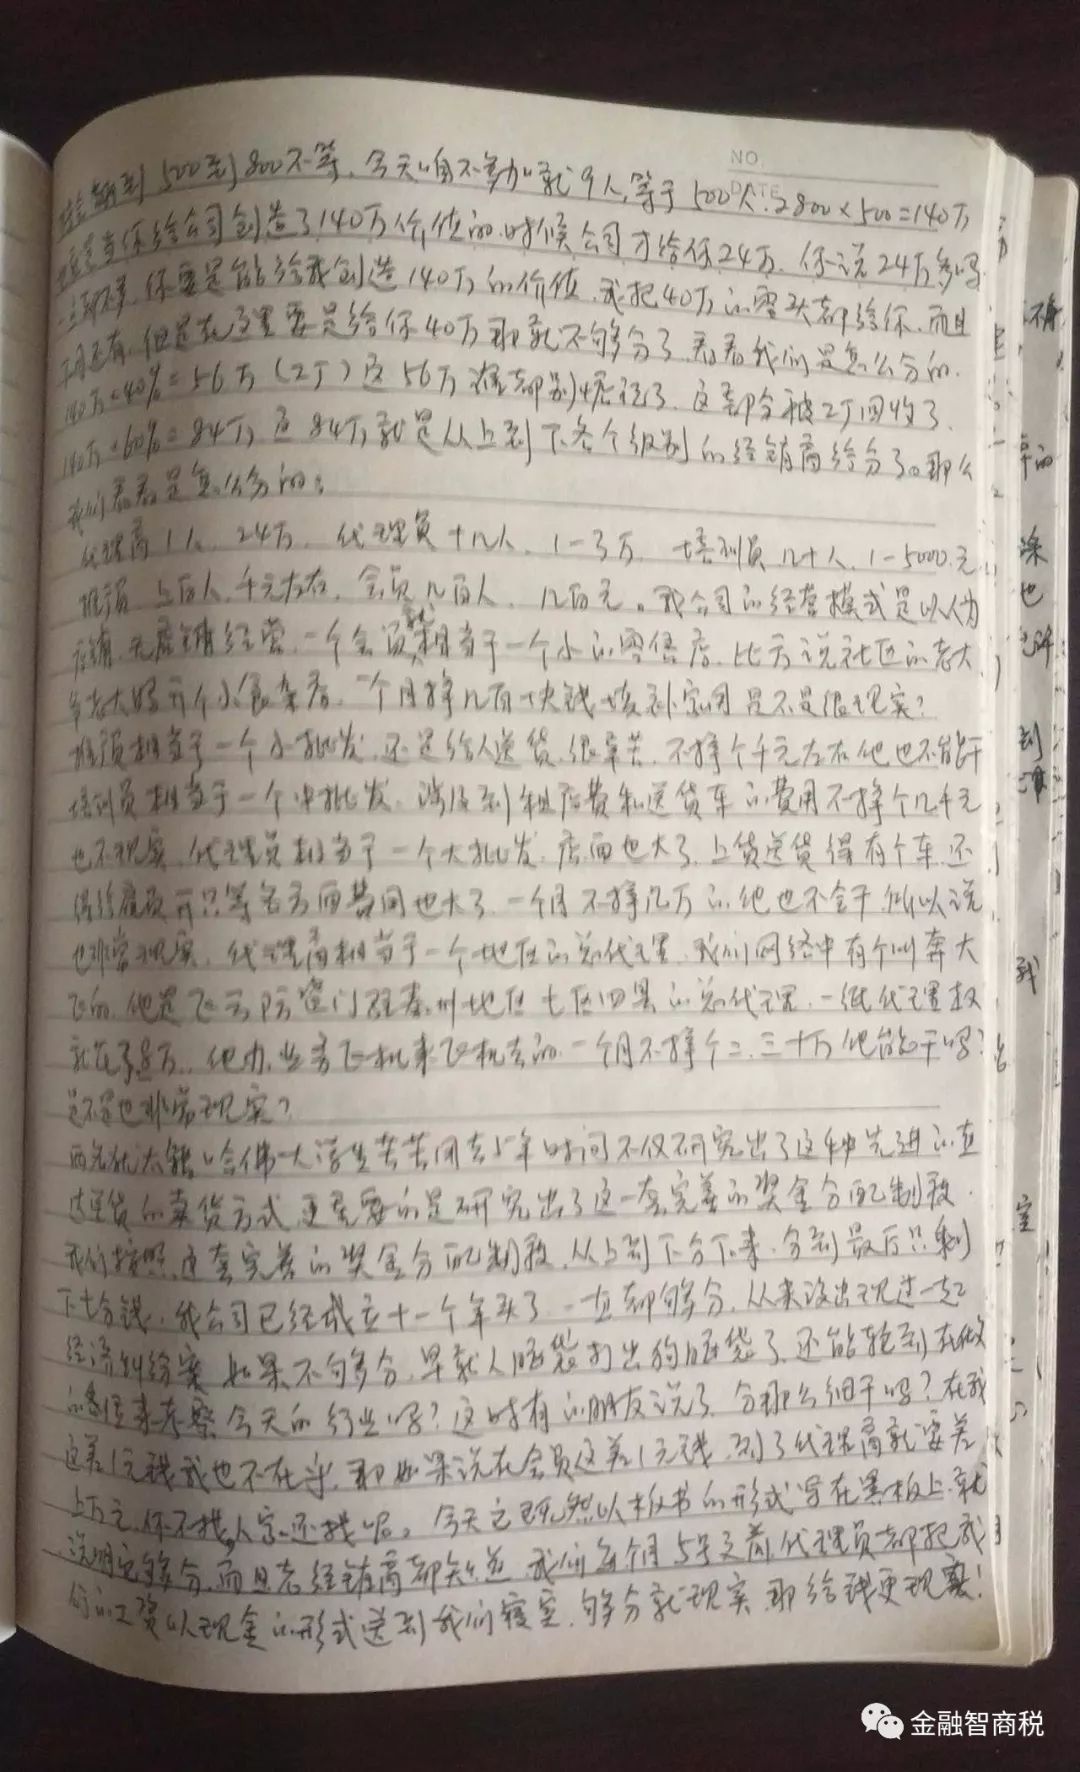 NO.
DATE
500到800不等,今天咱不多加就9人,等于500人:2800×500=140万
当你给公司创造了140万价值的时候公司才给你24万,你说24万多吗
你要是能给我创造140万的价值,我把40万的零头都给你,而且
下月还有,但是在这里要是给你40万那就不够分了,看看我们是怎么分的.
140万×40%=56万(工厂)这56万谁都别惦记了,这部分被工厂回收了.
140万×60%=84万,这84万就是从上到下各个级别的经销商给分了。那么
我们看看是怎么分的:
代理商1人,24万,代理员十几人,1-3万,培训员几十人,1-5000元
推销员上百人,千元左右,会员几百人,几百元。我公司的经营模式是以人为
店铺,无店铺经营,一个会员就相当于一个小的零售店,比方说社区的老大
爷老大妈开个小食杂店,一个月挣几百块钱填补家用是不是很现实?
推销员相当于一个小批发,还是给人送货,很辛苦,不挣个千元左右他也不能干
培训员相当于一个中批发,涉及到租店费和送货车的费用不挣个几千元
也不现实,代理员相当于一个大批发,店面也大了,上货送货得有个车,还
得给雇员开工资各方面费用也大了,一个月不挣几万的他也不会干,所以说
也非常现实,代理商相当于一个地区的总代理,我们网络中有个叫奔大
飞的,他是飞云防盗门驻泰州地区七区四县的总代理,一级代理权
就花了8万,他办业务飞机来飞机去的,一个月不挣个二、三十万他能干吗?
是不是也非常现实?
两名犹太籍哈佛大学生苦苦用去5年时间不仅研究出了这种先进的直
达送货的卖货方式,更重要的是研究出了这一套完善的奖金分配制度.
我们按照这套完善的奖金分配制度,从上到下分下来,分到最后只剩
下七分钱,我公司已经成立十一个年头了,一直都够分,从来没出现过一起
经济纠纷案,如果不够分,早就人脑袋打出狗脑袋了,还能轮到在做
的各位来考察今天的行业吗?这时有的朋友说了,分那么细干吗?在我
这差1元钱我也不在乎,那如果说在会员这差1元钱,到了代理商就要差
上万元,你不找,人家还找呢。今天它既然以板书的形式写在黑板上,就
说明它够分,而且老经销商都知道,我们每个月5号之前,代理员都把我
们的工资以现金的形式送到我们寝室,够分就现实,那给钱更现实!
金融智商税